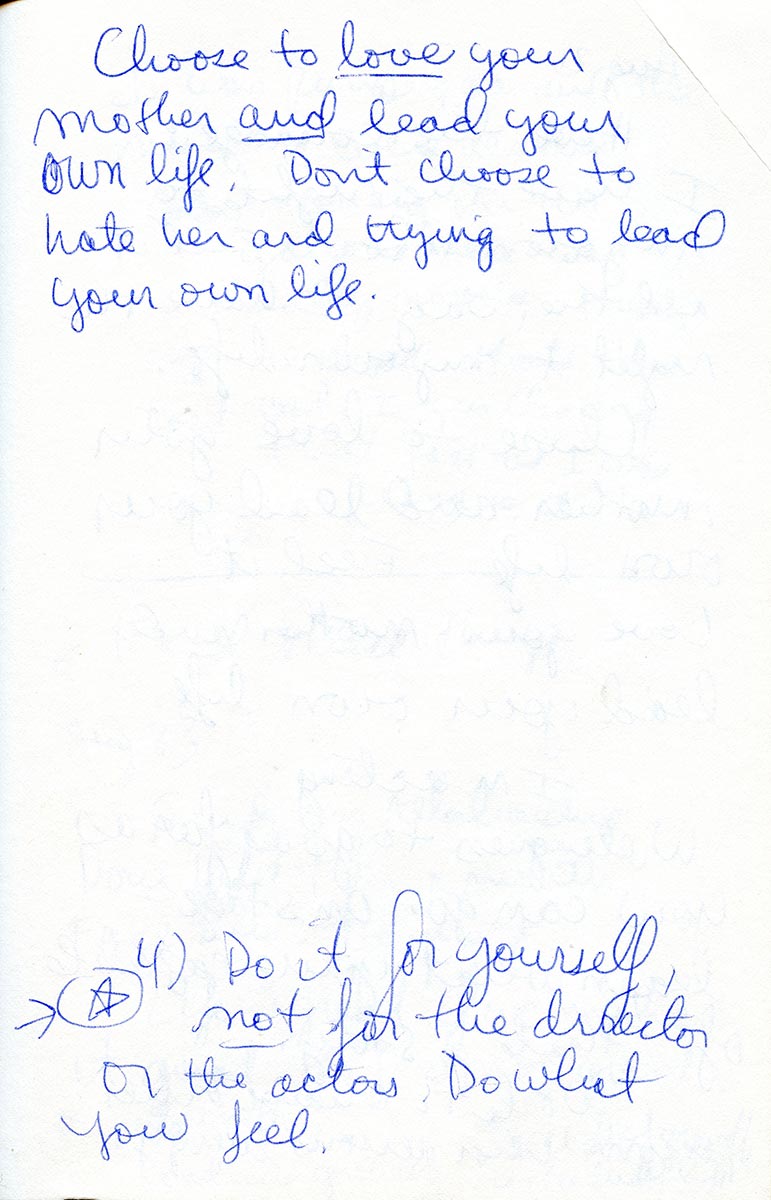 Choose to love your
mother and lead your
own life. Don't choose to
hate her and trying to lead
your own life.
4) Do it for yourself,
not for the director
or the actors. Do what
you feel.